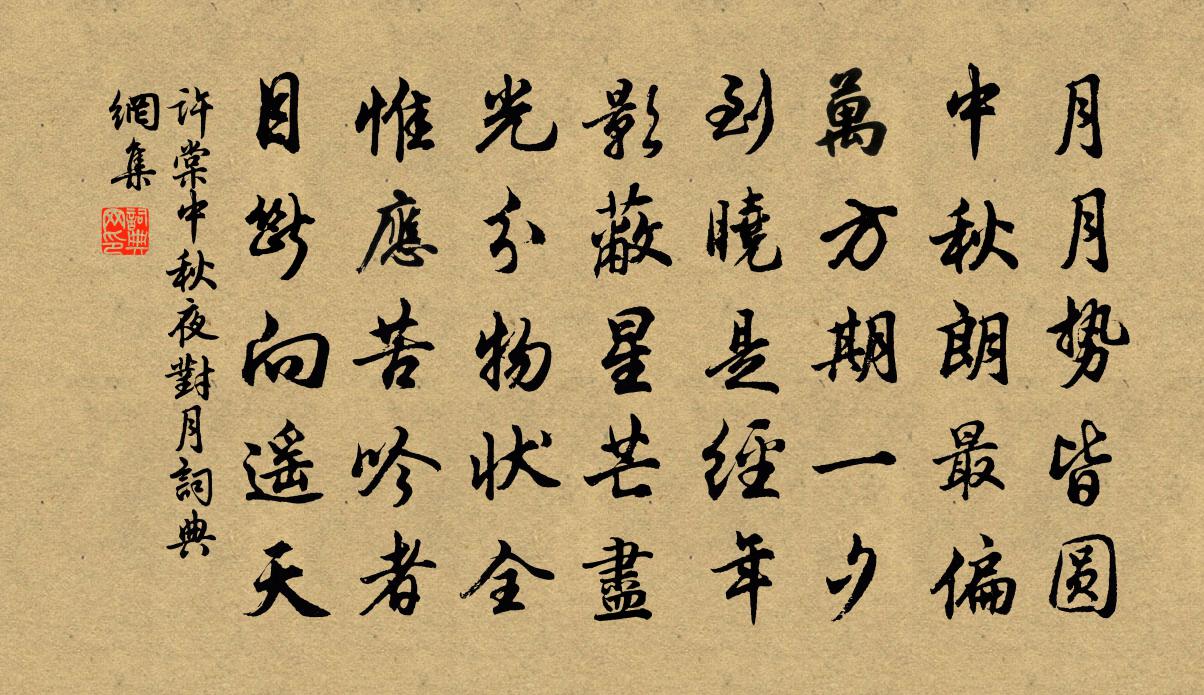 月月势皆圆
中秋朗最偏
萬方期一夕
到曉是經年
影蔽星芒盡
光分物状全
惟應苦吟者
目斷向遥天
許棠中秋夜對月詞典
網集
詞典
网印